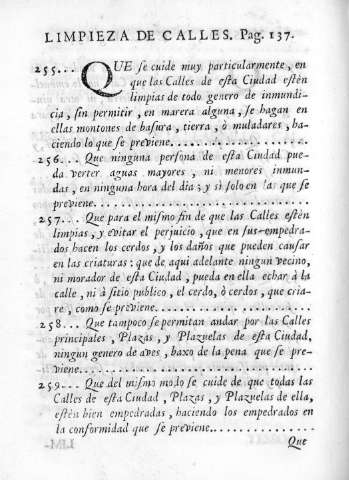 LIMPIEZA DE CALLES. Pag. 137.
255... QUE se cuide muy particularmente, en
que las Calles de esta Ciudad estèn
limpias de todo genero de inmundi-
cia, sin permitir, en marera alguna, se hagan en
ellas montones de basura, tierra, ò muladares, ha-
ciendo lo que se previene..................
256... Que ninguna persona de esta Ciudad pue-
da verter aguas mayores, ni menores inmun-
das, en ninguna hora del dia; y si solo en las que se
previene..................
257... Que para el mismo fin de que las Calles estèn
limpias, y evitar el perjuicio, que en sus empedra-
dos hacen los cerdos, y los daños que pueden causar
en las criaturas: que de aqui adelante ningun vecino,
ni morador de esta Ciudad, pueda en ella echar à la
calle, ni à sitio publico, el cerdo, ò cerdos, que cria-
re, como se previene..................
258... Que tampoco se permitan andar por las Calles
principales, Plazas, y Plazuelas de esta Ciudad,
ningun genero de aves, baxo de la pena que se pre-
viene..................
259... Que del mismo modo se cuide de que todas las
Calles de esta Ciudad, Plazas, y Plazuelas de ella,
estèn bien empedradas, haciendo los empedrados en
la conformidad que se previene..................
Que